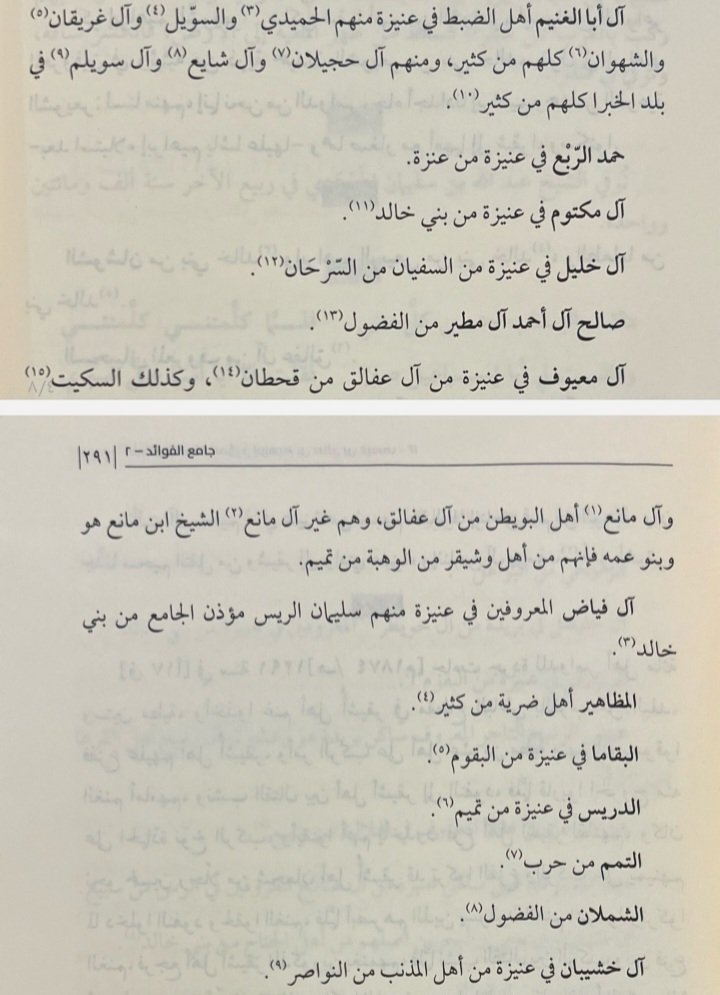 آل أبا الغنيم أهل الضبط في عنيزة منهم الحميدي(٣) والسوّيل(٤) وآل غريقان(٥)
والشهوان(٦) كلهم من كثير، ومنهم آل حجيلان(٧) وآل شايع(٨) وآل سويلم(٩) في
بلد الخبرا كلهم من كثير(١٠).
حمد الرّبْع في عنيزة من عنزة.
آل مكتوم في عنيزة من بني خالد(١١).
آل خليل في عنيزة من السفيان من السّرْحَان(١٢).
صالح آل أحمد آل مطير من الفضول(١٣).
آل معيوف في عنيزة من آل عفالق من قحطان(١٤)، وكذلك السكيت(١٥)
جامع الفوائد – ٢ |٢٩١|
وآل مانع(١) أهل البويطن من آل عفالق، وهم غير آل مانع(٢) الشيخ ابن مانع هو
وبنو عمه فإنهم من أهل وشيقر من الوهبة من تميم.
آل فياض المعروفين في عنيزة منهم سليمان الريس مؤذن الجامع من بني
خالد(٣).
المظاهير أهل ضرية من كثير(٤).
البقاما في عنيزة من البقوم(٥).
الدريس في عنيزة من تميم(٦).
التمم من حرب(٧).
الشملان من الفضول(٨).
آل خشيبان في عنيزة من أهل المذنب من النواصر(٩).